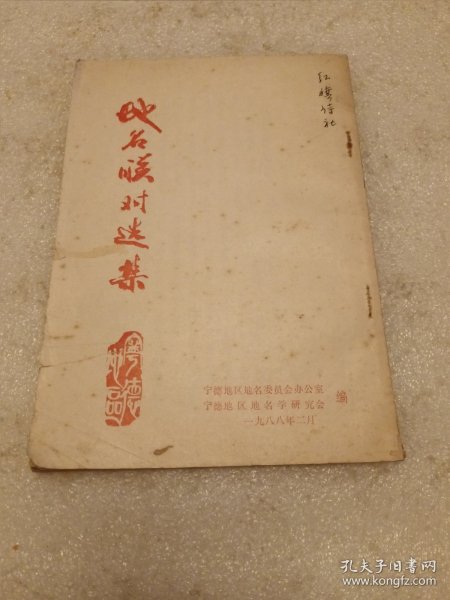 红楼诗社
地名联对选集
宁德地名
宁德地区地名委员会办公室
宁德地区地名学研究会
编
一九八八年二月
孔夫子旧书网
www.kongfz.com